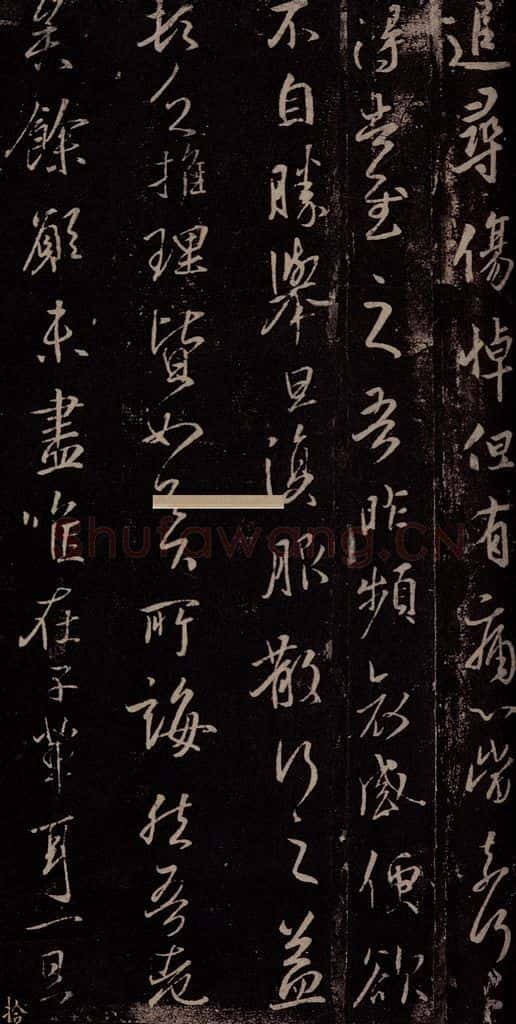 追尋傷悼但有痛心當奈何〻
得告慰之吾昨頻哀感便欲
不自勝舉旦復服散行之益
頓乏推理皆如君所誨然吾老
矣餘願未盡唯在子輩耳一旦
拾
Shufawang.CN